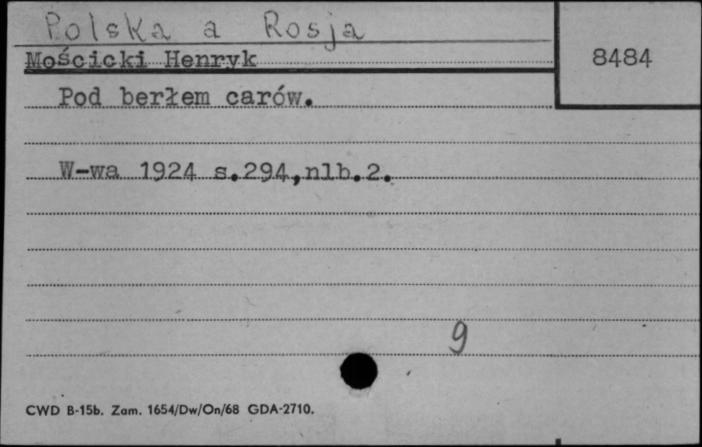 Polska a Rosja
Mościcki Henryk
8484
Pod berłem carów.
W-wa 1924 s.294,nlb.2.
9
CWD B-15b. Zam. 1654/Dw/On/68 GDA-2710.